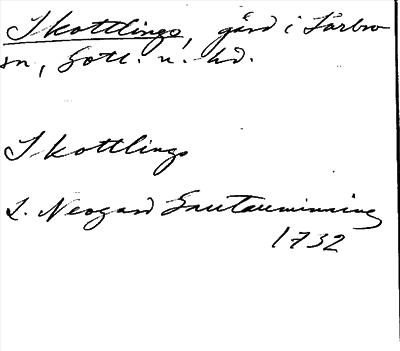 Skottlings, gård i Lärbro
sn, Gotl. n. hd.
Skottlings
L. Neogard Gautauminning
1732